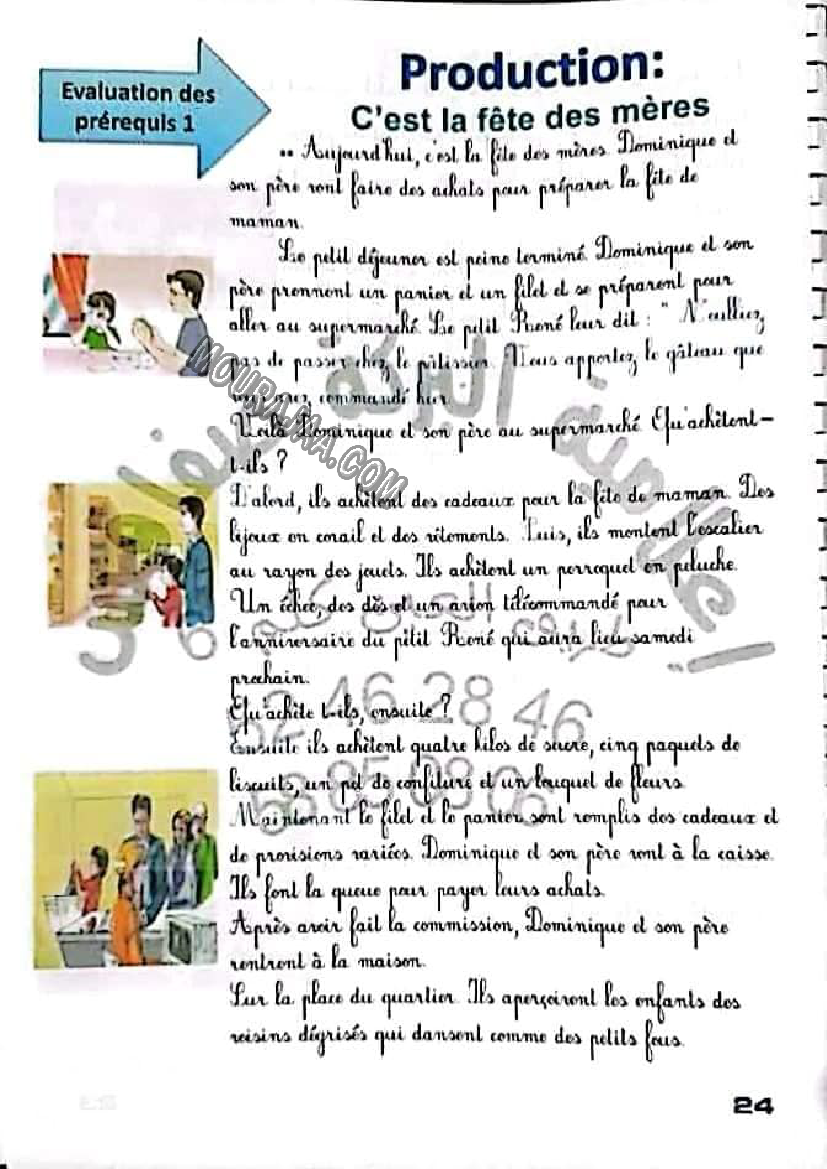 Evaluation des
prérequis 1
Production:
C'est la fête des mères
Aujourd'hui, c'est la fête des mères. Dominique et
son père vont faire des achats pour préparer la fête de
maman.
Le petit déjeuner est peine terminé. Dominique et son
père prennent un panier et un filet et se préparent pour
aller au supermarché. Le petit René leur dit : " N'oubliez
pas de passer chez le pâtissier. Vous apportez le gâteau que
vous avez commandé hier.
Voilà Dominique et son père au supermarché. Qu'achètent-
t-ils ?
D'abord, ils achètent des cadeaux pour la fête de maman. Des
bijoux en corail et des vêtements. Puis, ils montent l'escalier
au rayon des jouets. Ils achètent un perroquet en peluche.
Un échec, des dés et un avion télécommandé pour
l'anniversaire du pitit René qui aura lieu samedi
prochain.
Qu'achète t-ils, ensuite ?
Ensuite ils achètent quatre kilos de sucre, cinq paquets de
biscuits, un pot de confiture et un bouquet de fleurs.
Maintenant le filet et le panier sont remplis des cadeaux et
de provisions variées. Dominique et son père vont à la caisse.
Ils font la queue pour payer leurs achats.
Après avoir fait la commission, Dominique et son père
rentrent à la maison.
Sur la place du quartier. Ils aperçoivent les enfants des
voisins dégrisés qui dansent comme des petits fous.
MOURAJAA.COM
52 46 28 46
24